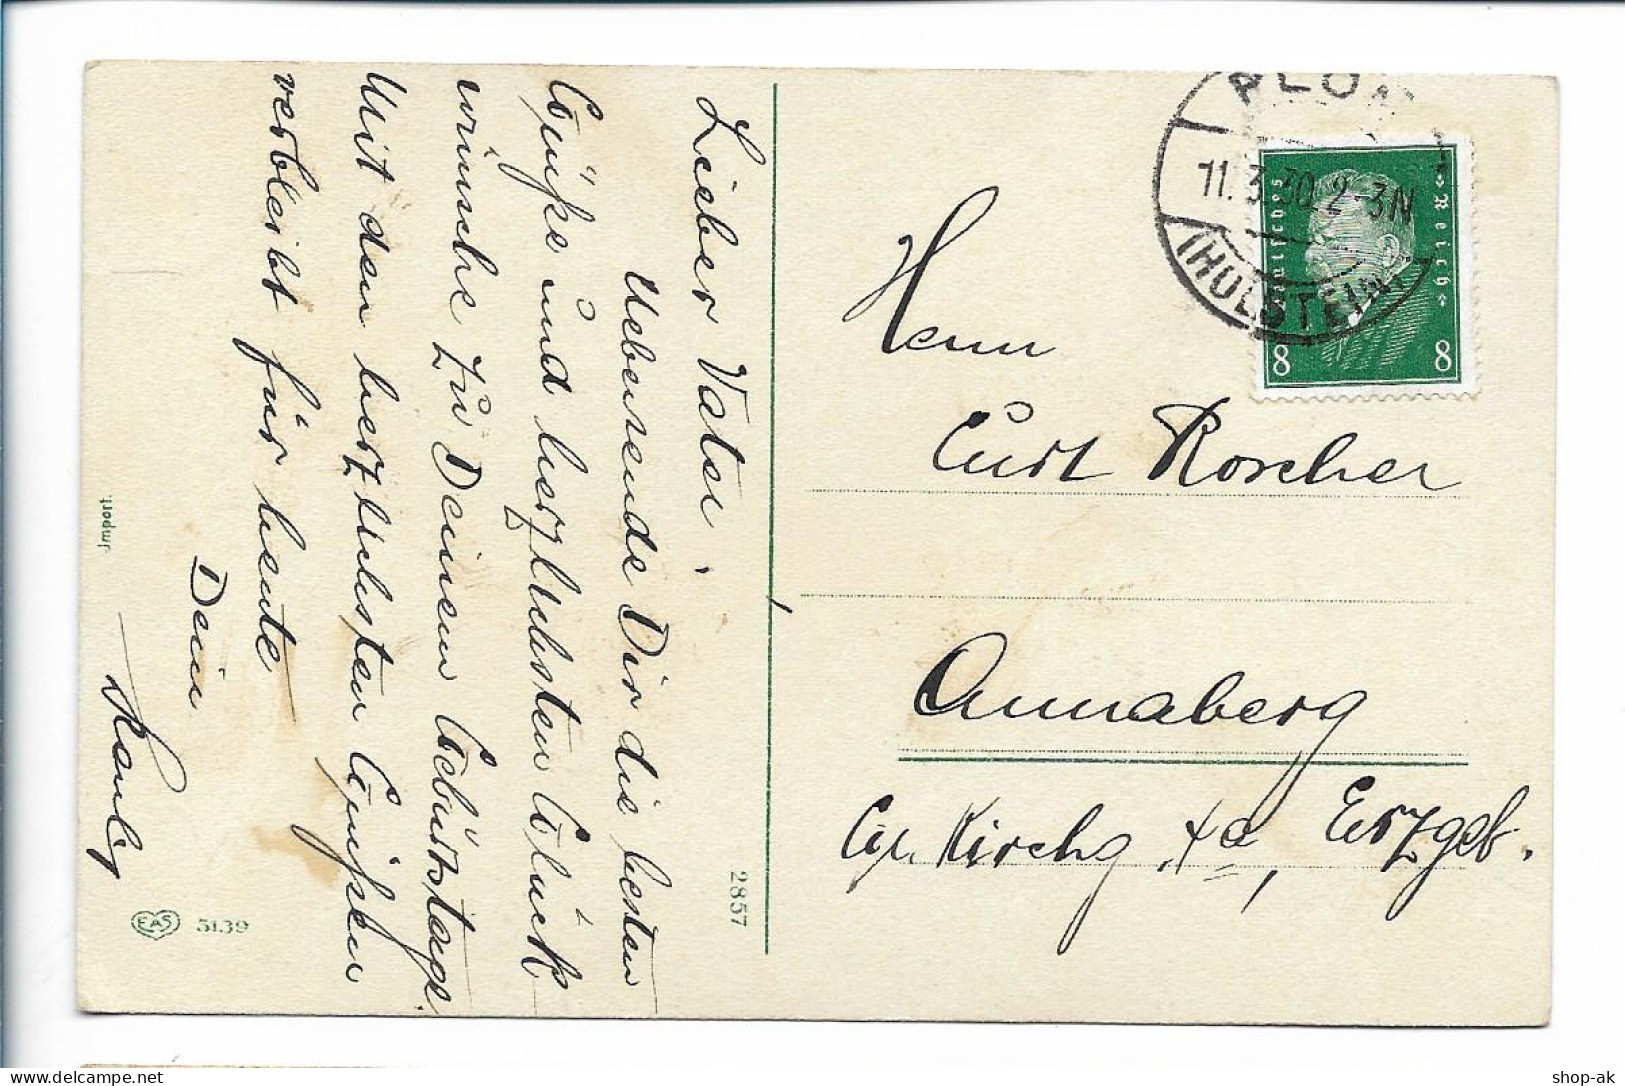 Lieber Vater.
Uebersende Dir die besten
Grüße und herzlichsten Glück
wünsche zu Deinem Geburtstage.
Mit den herzlichsten Grüßen
verbleibt für heute
Dein
Import.
EAS 5139
2857
PLÖN
11.3.30.2-3N
(HOLSTEIN)
Deutsches Reich
8 8
Herrn
Curt Roscher
Annaberg
Kirchg Erzgeb.
shop-ak